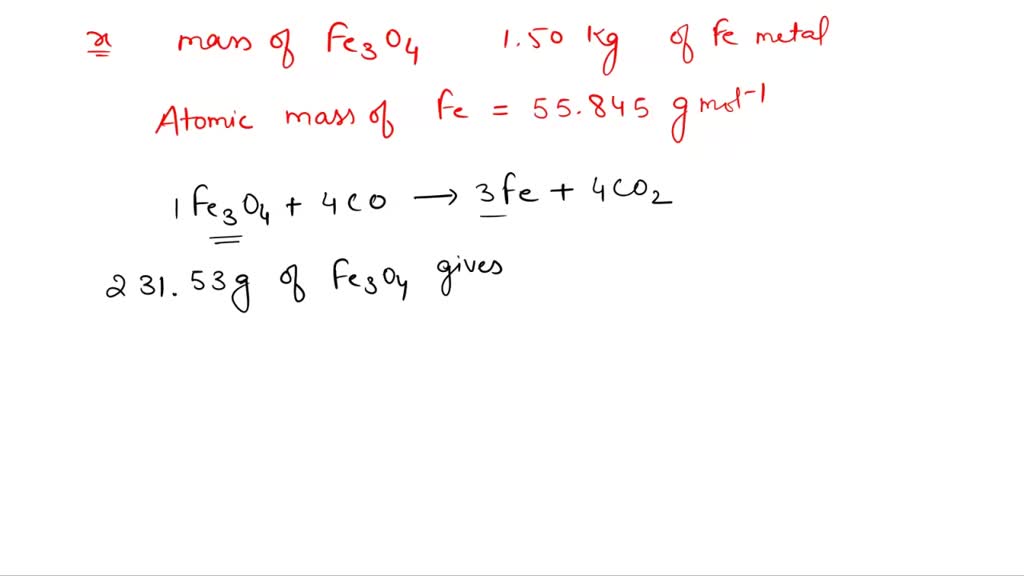 x mass of Fe₃O₄ 1.50 kg of Fe metal
Atomic mass of Fe = 55.845 g mol⁻¹
1 Fe₃O₄ + 4CO ⟶ 3Fe + 4CO₂
231.53g of Fe₃O₄ gives